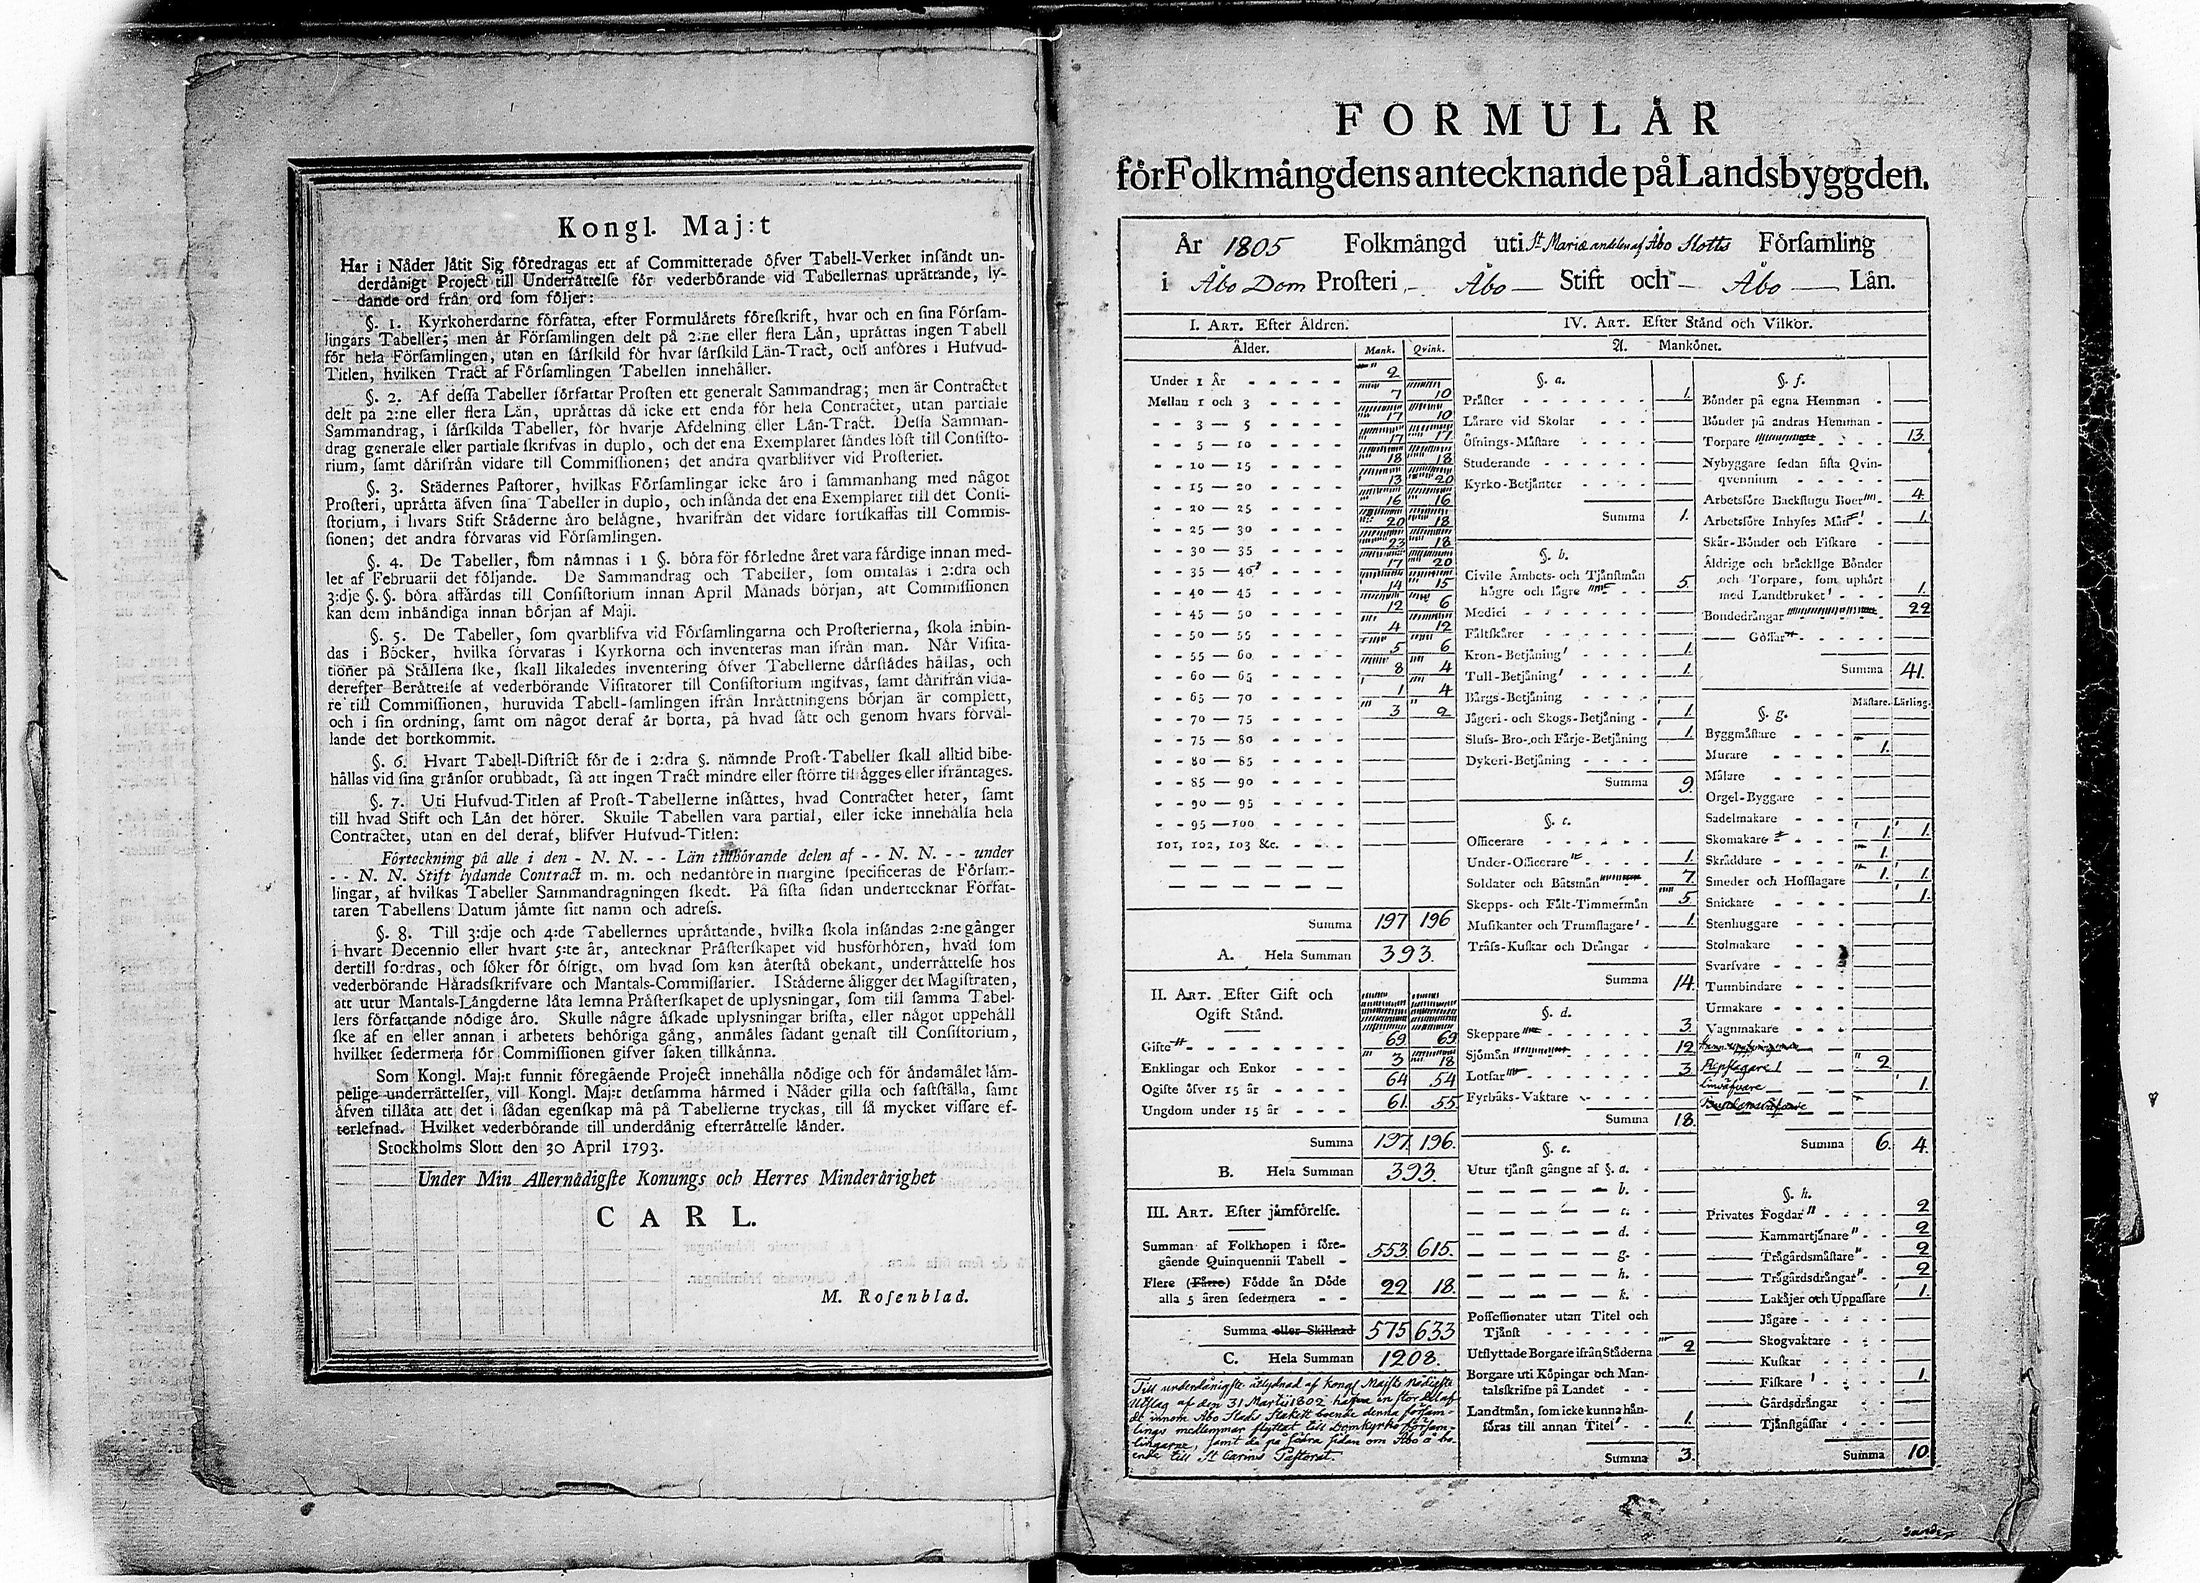 Kongl. Maj:t
Har i Nåder låtit Sig föredragas ett af Committerade öfver Tabell-Verket insändt un-
derdånigt Project till Underrättelse för vederbörande vid Tabellernas uprättande, ly-
dande ord från ord som följer:
§. 1. Kyrkoherdarne författa, efter Formulårets föreskrift, hvar och en sina Försam-
lingars Tabeller; men är Församlingen delt på 2:ne eller flera Län, uprättas ingen Tabell
för hela Församlingen, utan en särskild för hvar särskild Län-Tract, och anföres i Hufvud-
Titlen, hvilken Tract af Församlingen Tabellen innehåller.
§. 2. Af dessa Tabeller författar Prosten ett generalt Sammandrag; men är Contractet
delt på 2:ne eller flera Län, uprättas då icke ett enda för hela Contractet, utan partiale
Sammandrag, i särskilda Tabeller, för hvarje Afdelning eller Län-Tract. Dessa Samman-
drag generale eller partiale skrifvas in duplo, och det ena Exemplaret sändes löst till Consisto-
rium, samt därifrån vidare till Commissionen; det andra qvarblifver vid Prosteriet.
§. 3. Städernes Pastorer, hvilkas Församlingar icke äro i sammanhang med något
Prosteri, uprätta äfven sina Tabeller in duplo, och insända det ena Exemplaret till det Consi-
storium, i hvars Stift Städerne äro belägne, hvarifrån det vidare fortskaffas till Commis-
sionen; det andra förvaras vid Församlingen.
§. 4. De Tabeller, som nämnas i 1 §. böra för förledne året vara färdige innan med-
let af Februarii det följande. De Sammandrag och Tabeller, som omtalas i 2:dra och
3:dje §. §. böra affärdas till Consistorium innan April Månads början, att Commissionen
kan dem inhändiga innan början af Maji.
§. 5. De Tabeller, som qvarblifva vid Församlingarna och Prosterierna, skola inbin-
das i Böcker, hvilka förvaras i Kyrkorna och inventeras man ifrån man. När Visita-
tioner på Ställena ske, skall likaledes inventering öfver Tabellerne därstädes hållas, och
derefter Berättelse af vederbörande Visitatorer till Consistorium ingifvas, samt därifrån vida-
re till Commissionen, huruvida Tabell-samlingen ifrån Inrättningens början är complett,
och i sin ordning, samt om något deraf är borta, på hvad sätt och genom hvars förvål-
lande det bortkommit.
§. 6. Hvart Tabell-District för de i 2:dra §. nämnde Prost-Tabeller skall alltid bibe-
hållas vid sina gränsor orubbadt, så att ingen Tract mindre eller större tillägges eller ifräntages.
§. 7. Uti Hufvud-Titlen af Prost-Tabellerne insättes, hvad Contractet heter, samt
till hvad Stift och Län det hörer. Skulle Tabellen vara partial, eller icke innehålla hela
Contractet, utan en del deraf, blifver Hufvud-Titlen:
Förteckning på alle i den - N. N. - - Län tillhörande delen af - - N. N. - - under
- - N. N. Stift lydande Contract m. m. och nedantöre in margine specificeras de Försam-
lingar, af hvilkas Tabeller Sammandragningen skedt. På sista sidan undertecknar Förfat-
taren Tabellens Datum jämte sitt namn och adress.
§. 8. Till 3:dje och 4:de Tabellernes uprättande, hvilka skola insändas 2:ne gånger
i hvart Decennio eller hvart 5:te år, antecknar Prästerskapet vid husförhören, hvad som
dertill fordras, och söker för öfrigt, om hvad som kan återstå obekant, underrättelse hos
vederbörande Häradsskrifvare och Mantals-Commissarier. I Städerne åligger det Magistraten,
att utur Mantals-Längderne låta lemna Prästerskapet de uplysningar, som till samma Tabel-
lers författande nödige äro. Skulle någre åskade uplysningar brista, eller något uppehåll
ske af en eller annan i arbetets behöriga gång, anmäles sådant genast till Consistorium,
hvilket sedermera för Commissionen gifver saken tillkänna.
Som Kongl. Maj:t funnit föregående Project innehålla nödige och för ändamålet läm-
pelige underrättelser, vill Kongl. Maj:t detsamma härmed i Nåder gilla och fastställa, samt
äfven tillåta att det i sådan egenskap må på Tabellerne tryckas, till så mycket vissare ef-
terlefnad. Hvilket vederbörande till underdånig efterrättelse länder.
Stockholms Slott den 30 April 1793.
Under Min Allernådigste Konungs och Herres Minderårighet
CARL.
M. Rosenblad.
FORMULÅR
för Folkmängdens antecknande på Landsbyggden.
År 1805 Folkmängd uti St Mariæ andelen af Åbo Slotts Församling
i Åbo Dom Prosteri Åbo Stift och Åbo Län.
I. ART. Efter Åldren.
Ålder. Mank. Qvink.
Under 1 År - - - - - 2
Mellan 1 och 3 - - - - 7 10
- - 3 — 5 - - - - 17 10
- - 5 — 10 - - - - 17 17
- - 10 — 15 - - - - 18 18
- - 15 — 20 - - - - 13 20
- - 20 — 25 - - - - 16 16
- - 25 — 30 - - - - 20 18
- - 30 — 35 - - - - 23 18
- - 35 — 40 - - - - 17 20
- - 40 — 45 - - - - 14 15
- - 45 — 50 - - - - 12 6
- - 50 — 55 - - - - 4 12
- - 55 — 60 - - - - 5 6
- - 60 — 65 - - - - 8 4
- - 65 — 70 - - - - 1 4
- - 70 — 75 - - - - 3 2
- - 75 — 80 - - - -
- - 80 — 85 - - - -
- - 85 — 90 - - - -
- - 90 — 95 - - - -
- - 95 — 100 - - - -
101, 102, 103 &c. - - -
Summa 197 196
A. Hela Summan 393.
II. ART. Efter Gift och
Ogift Stånd.
Gifte - - - - - - 69 69
Enklingar och Enkor - - - 3 18
Ogifte öfver 15 år - - - 64 54
Ungdom under 15 år - - - 61. 55
Summa 197. 196.
B. Hela Summan 393.
III. ART. Efter jämförelse.
Summan af Folkhopen i före-
gående Quinquennii Tabell - 553 615.
Flere (Färre) Födde än Döde
alla 5 åren sedermera - - 22 18.
Summa eller Skillnad 575 633
C. Hela Summan 1208.
Till underdånigste åtlydnad af Kongl Majsts Nådigste
Utslag af den 31 Martii 1802 hafva en stor del af
de innom Åbo Stads Stakett boende denna försam-
lings medlemmar flyttat till Domkyrko församlingarne,
samt de på södra sidan om Åbo å bo-
ende till St Carins Pastorat.
IV. ART. Efter Stånd och Vilkor.
A. Mankönet.
§. a.
Präster - - - - - 1.
Lärare vid Skolar - -
Öfnings-Mästare - - -
Studerande - - - - -
Kyrko-Betjänter - - -
Summa 1.
§. b.
Civile Ämbets- och Tjänstmän
högre och lägre 5.
Medici - - - - - -
Fältskärer - - - - -
Kron-Betjäning 1.
Tull-Betjäning 1.
Bärgs-Betjäning - - -
Jägeri- och Skogs-Betjäning - 1.
Sluss- Bro- och Färje-Betjäning 1.
Dykeri-Betjäning - - - -
Summa 9.
§. c.
Officerare - - - - - -
Under-Officerare 1.
Soldater och Båtsmän 7.
Skepps- och Fält-Timmermän 5.
Musikanter och Trumslagare 1.
Träss-Kuskar och Drängar -
Summa 14.
§. d.
Skeppare 3.
Sjömän 12
Lotsar 3.
Fyrbåks-Vaktare - - -
Summa 18.
§. e.
Utur tjänst gångne af §. a. -
— — — — — b. -
— — — — — c. -
— — — — — d. -
— — — — — g. -
— — — — — h. -
— — — — — k. -
Possessionater utan Titel och
Tjänst - - - - - -
Utflyttade Borgare ifrån Städerna 2
Borgare uti Köpingar och Man-
talsskrifne på Landet - -
Landtmän, som icke kunna hän-
föras till annan Titel - 1.
Summa 3.
§. f.
Bönder på egna Hemman -
Bönder på andras Hemman -
Torpare 13.
Nybyggare sedan sista Qvin-
qvennium - - - - -
Arbetsföre Backstugu Boer - 4.
Arbetsföre Inhyses Män - 1.
Skär-Bönder och Fiskare -
Äldrige och bräcklige Bönder
och Torpare, som uphört
med Landtbruket - - - 1.
Bondedrängar 22
— Gossar - - - -
Summa 41.
§. g. Mästare. Lärling.
Byggmästare - - -
Murare - - - - 1.
Målare - - - -
Orgel-Byggare - -
Sadelmakare - - -
Skomakare - - - 1. 1.
Skräddare - - - 1.
Smeder och Hofslagare 1. 1.
Snickare - - - - 1.
Stenhuggare - - -
Stolmakare - - -
Svarfvare - - - -
Tunnbindare - - -
Urmakare - - - -
Vagnmakare - - -
Repslagare 2
Linväfvare 1.
Summa 6. 4.
§. h.
Privates Fogdar - - - - 2
— Kammartjänare - - 2
— Trägårdsmästare - - 2
— Trägårdsdrängar - - 2
— Lakäjer och Uppassare 1.
— Jägare - - - - -
— Skogvaktare - - -
— Kuskar - - - -
— Fiskare - - - - 1.
— Gårdsdrängar - - -
— Tjänstgåssar - - -
Summa 10.